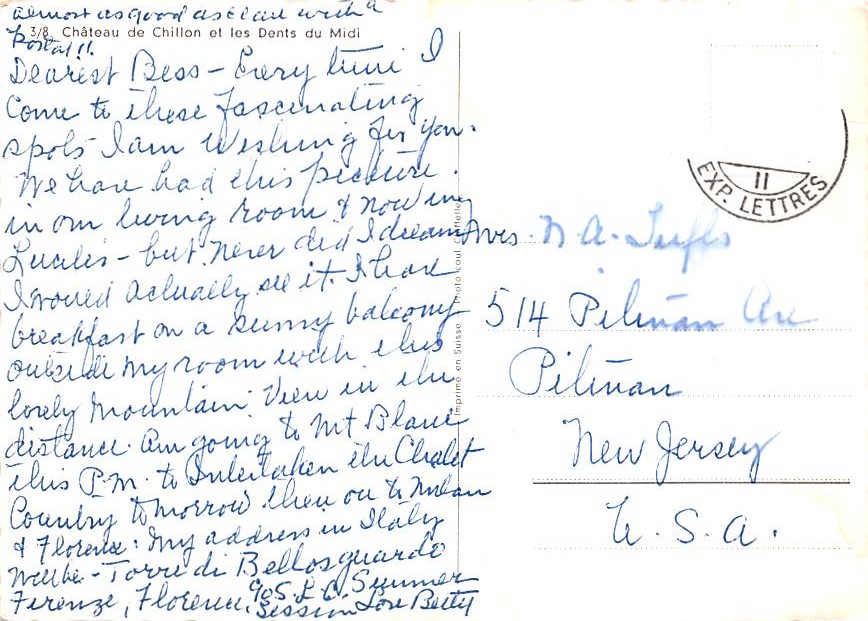 almost as good as I can with a
Postal!!
3/8 Château de Chillon et les Dents du Midi
Dearest Bess - Every time I
Come to these fascinating
spots I am wishing for you.
We have had this picture
in our living room & now in
Lucile's - but never did I dream
I would actually see it. I had
breakfast on a sunny balcony
outside my room with this
lovely Mountain View in the
distance. Am going to Mt Blanc
this P.M. to Interlaken the Chalet
Country tomorrow then on to Milan
& Florence: My address in Italy
will be - Torre di Bellosguardo
Firenze, Florence, % S. L. C. Summer
Session Love Betty
Imprimé en Suisse Photo coul
EXP. LETTRES
II
Mrs. N A.
514 Pitman Ave
Pitman
New Jersey
U. S. A.